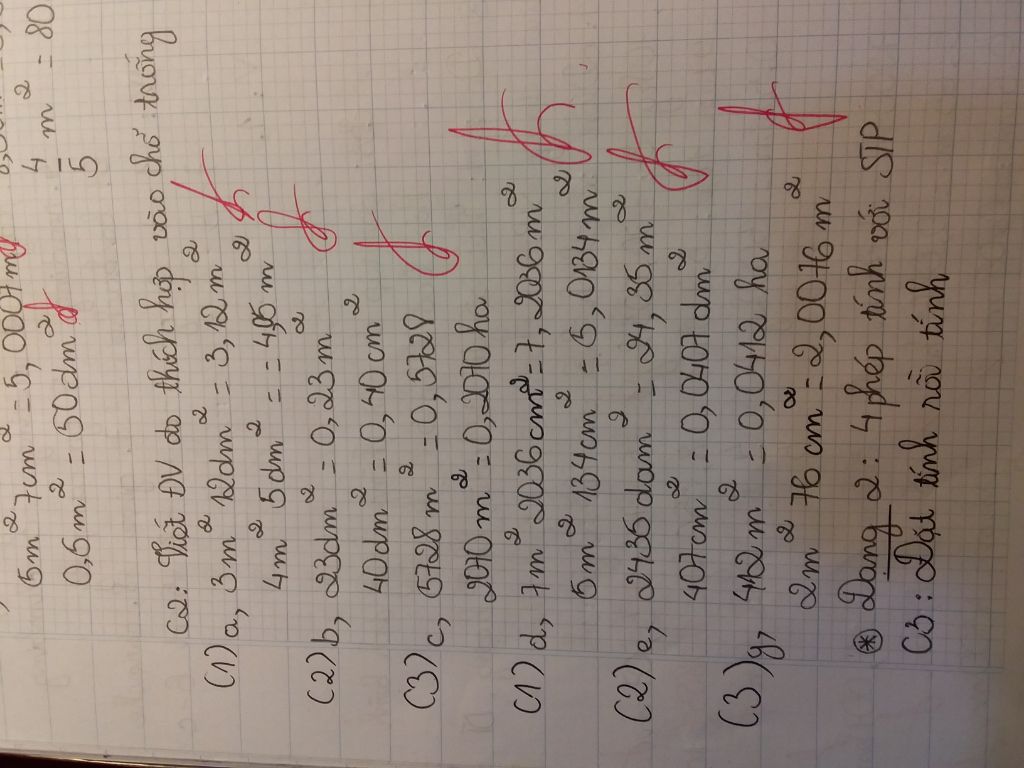 5m² 7cm² = 5,0007m²
0,5m² = 50dm²
4/5 m² = 80
C2: Viết ĐV đo thích hợp vào chỗ trống
(1) a, 3m² 12dm² = 3,12m²
4m² 5dm² = = 4,05m²
(2) b, 23dm² = 0,23m²
40dm² = 0,40cm²
(3) c, 5728m² = 0,5728
2070m² = 0,2070ha
(1) d, 7m² 2036cm² = 7,2036m²
5m² 134cm² = 5,0134m²
(2) e, 2435dam² = 24,35m²
407cm² = 0,0407dm²
(3) g, 412m² = 0,0412ha
2m² 76cm² = 2,0076m²
* Dạng 2: 4 phép tính với STP
C3: Đặt tính rồi tính